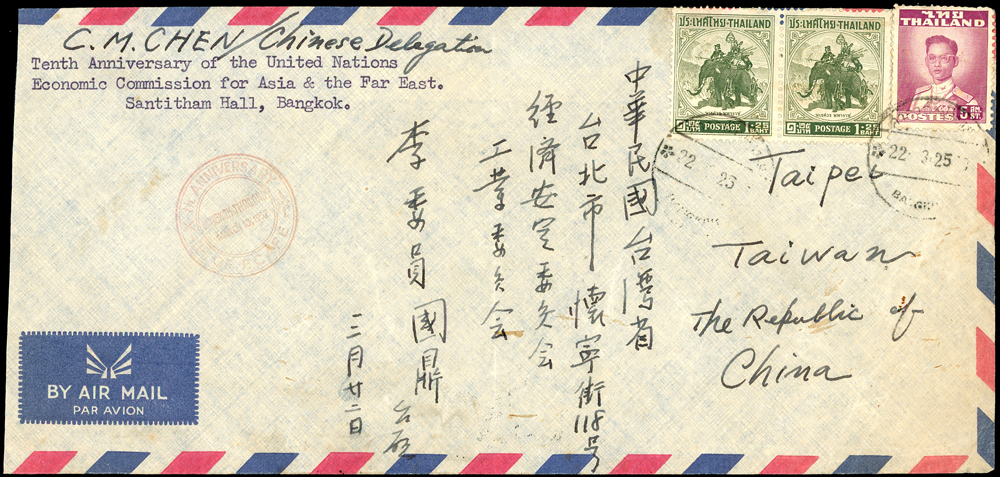 C. M. CHEN / Chinese Delegation
Tenth Anniversary of the United Nations
Economic Commission for Asia & the Far East.
Santitham Hall, Bangkok.
ประเทศไทย-THAILAND
POSTAGE 1·25
BAHT
ประเทศไทย-THAILAND
POSTAGE 1·25
BAHT
ไทย
THAILAND
POSTES 5
ST.
22 25
22 3 25
X-th ANNIVERSARY
Taipei
Taiwan
The Republic of
China
中華民國台灣省
台北市懷寧街118号
經濟安定委員会
工業委員会
李委員國鼎台啟
三月廿二日
BY AIR MAIL
PAR AVION